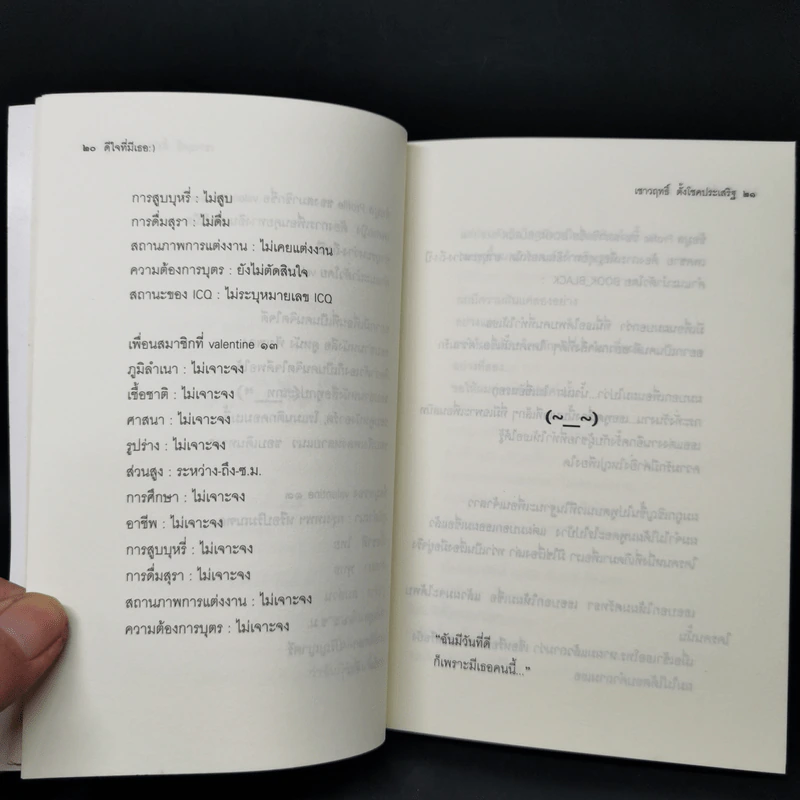 ๒๐ ดีใจที่มีเธอ:)
การสูบบุหรี่ : ไม่สูบ
การดื่มสุรา : ไม่ดื่ม
สถานภาพการแต่งงาน : ไม่เคยแต่งงาน
ความต้องการบุตร : ยังไม่ตัดสินใจ
สถานะของ ICQ : ไม่ระบุหมายเลข ICQ
เพื่อนสมาชิกที่ valentine ๑๓
ภูมิลำเนา : ไม่เจาะจง
เชื้อชาติ : ไม่เจาะจง
ศาสนา : ไม่เจาะจง
รูปร่าง : ไม่เจาะจง
ส่วนสูง : ระหว่าง-ถึง-ซ.ม.
การศึกษา : ไม่เจาะจง
อาชีพ : ไม่เจาะจง
การสูบบุหรี่ : ไม่เจาะจง
การดื่มสุรา : ไม่เจาะจง
สถานภาพการแต่งงาน : ไม่เจาะจง
ความต้องการบุตร : ไม่เจาะจง
เชาวฤทธิ์ ตั้งโชคประเสริฐ ๒๑
(~__~)
"ฉันมีวันที่ดี
ก็เพราะมีเธอคนนี้..."